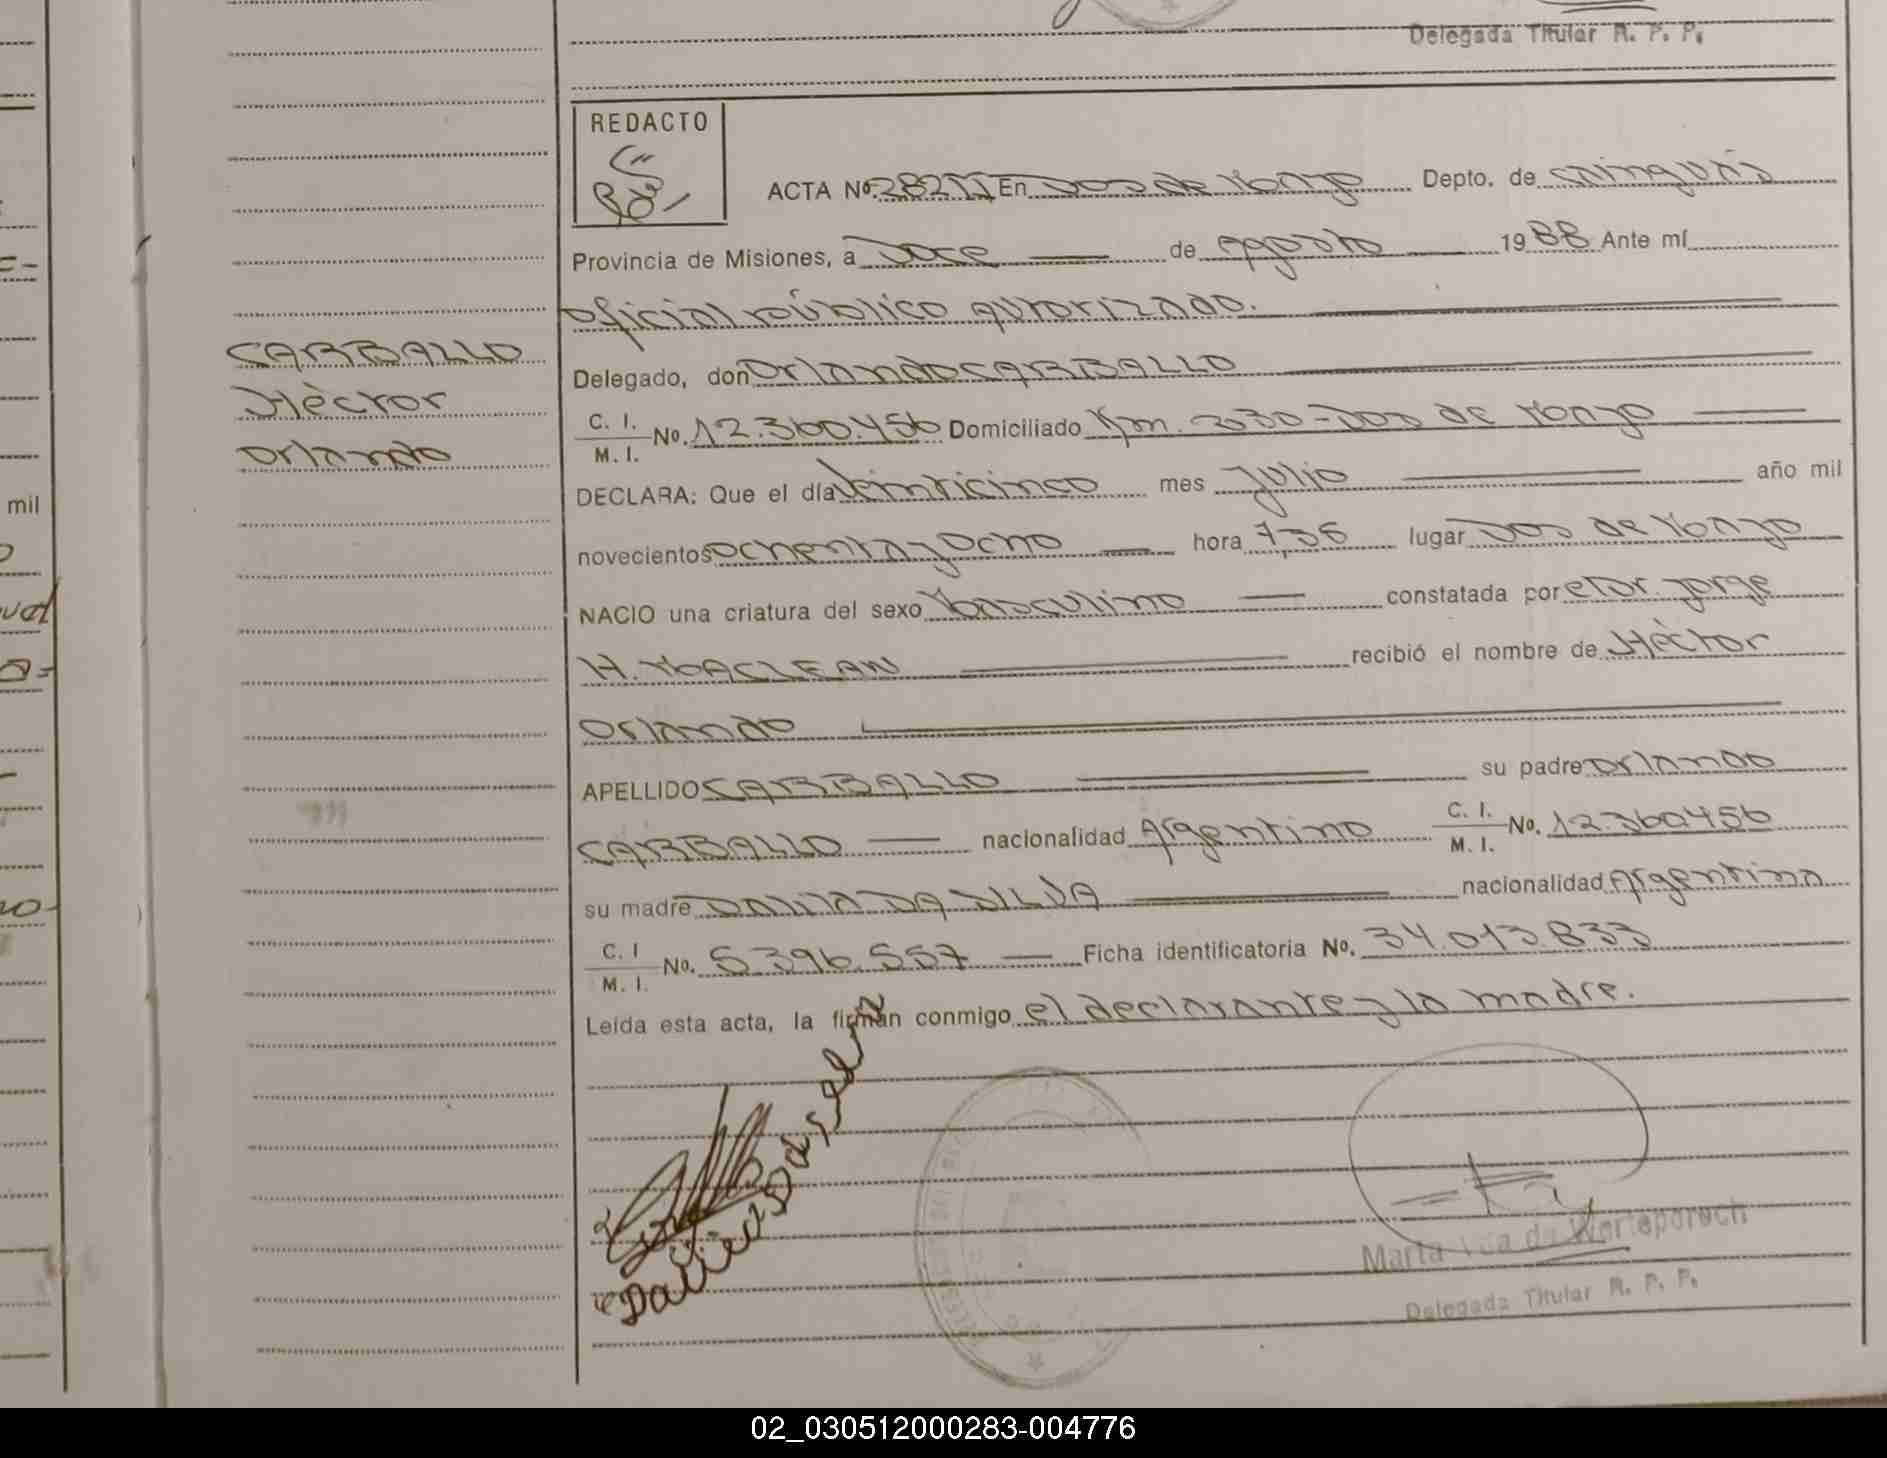 Delegada Titular R. P. P.
REDACTO
ACTA No. 282 En Dos de Mayo Depto. de Cainguás
Provincia de Misiones, a Doce de Agosto 1988 Ante mí
oficial público autorizado.
CARBALLO
Hèctor
Orlando
Delegado, don Orlando CARBALLO
C. I.
M. I.
No. 12.360.456 Domiciliado Km. 2030 - Dos de Mayo
DECLARA: Que el día Veinticinco mes Julio año mil
novecientos ochenta y ocho hora 7,35 lugar Dos de Mayo
NACIO una criatura del sexo Masculino constatada por el Dr. Jorge
H. MACLEAN recibió el nombre de Hèctor
Orlando
APELLIDO CARBALLO su padre Orlando
CARBALLO nacionalidad Argentino C. I.
M. I. No. 12.360.456
su madre DALILA DA SILVA nacionalidad Argentina
C. I
M. I. No. 5.396.557 Ficha identificatoria No. 34.013.833
Leída esta acta, la firman conmigo el declarante y la madre.
Marta Vda de
Delegada Titular R. P. P.
mil
02_030512000283-004776